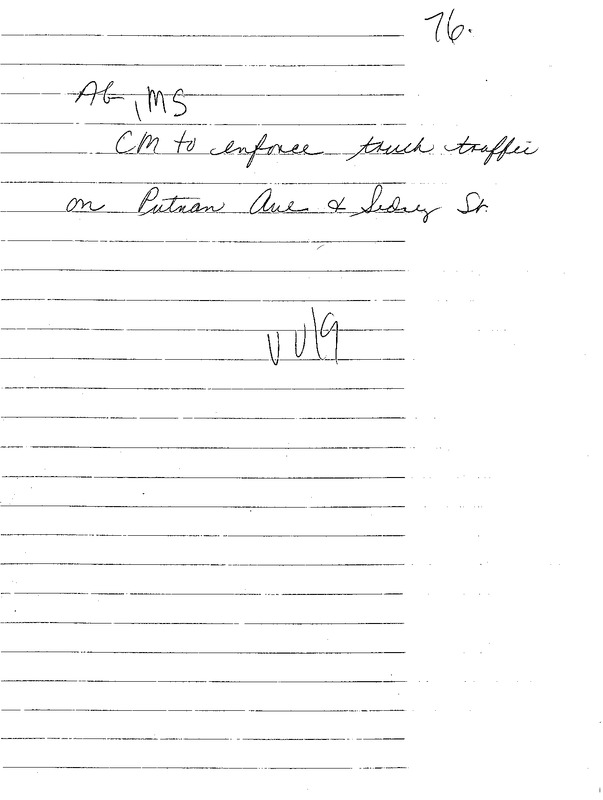 76.
AG, MS
CM to enforce truck traffic
on Putnam Ave & Sidney St.